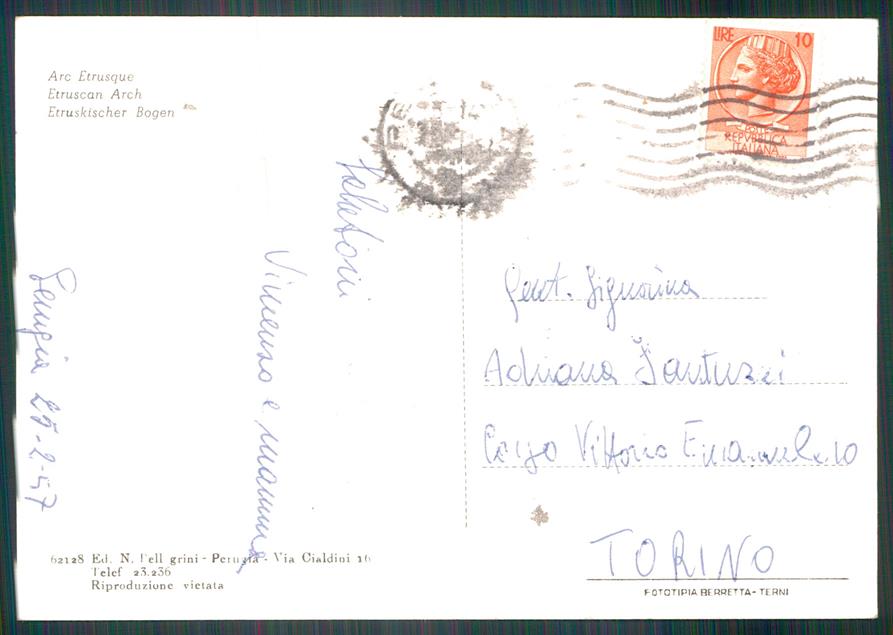 Arc Etrusque
Etruscan Arch
Etruskischer Bogen
LIRE 10
POSTE
REPVBBLICA
ITALIANA
Perugia 25-2-57
Vincenzo e mamma
Gent. Signorina
Adriana Santuzzi
Corso Vittorio Emanuele 10
TORINO
62128 Ed. N. Pell grini - Perugia - Via Cialdini 16
Telef 23.236
Riproduzione vietata
FOTOTIPIA BERRETTA - TERNI